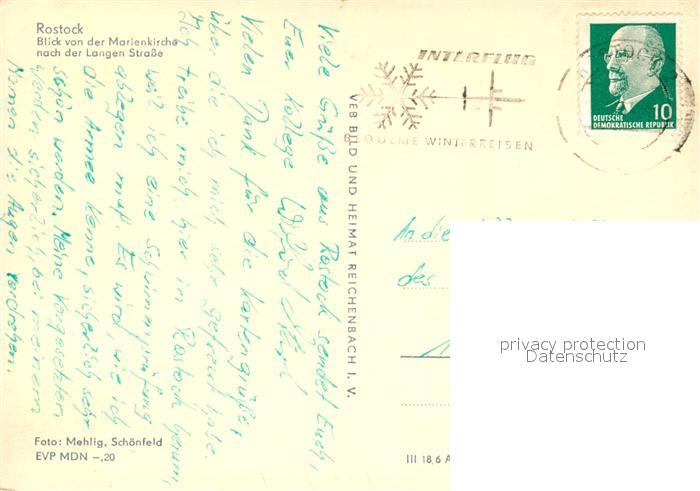 Rostock
Blick von der Marienkirche
nach der Langen Straße
Viele Grüße aus Rostock sendet Euch,
Euer Kollege
Vielen Dank für die Kartengrüße,
über die ich mich sehr gefreut habe.
Ich treibe mich hier in Rostock herum,
weil ich eine Schwimmprüfung
ablegen muß. Es wird, wie ich
die Armee kenne, sicherlich sehr
schön werden. Meine Vorgesetzten
werden sicherlich bei meinem
Namen die Augen verdrehen.
Foto: Mehlig, Schönfeld
EVP MDN –,20
VEB BILD UND HEIMAT REICHENBACH I. V.
INTERFLUG
WINTERREISEN
10
DEUTSCHE
DEMOKRATISCHE REPUBLIK
An die
des
privacy protection
Datenschutz
III 18,6 A